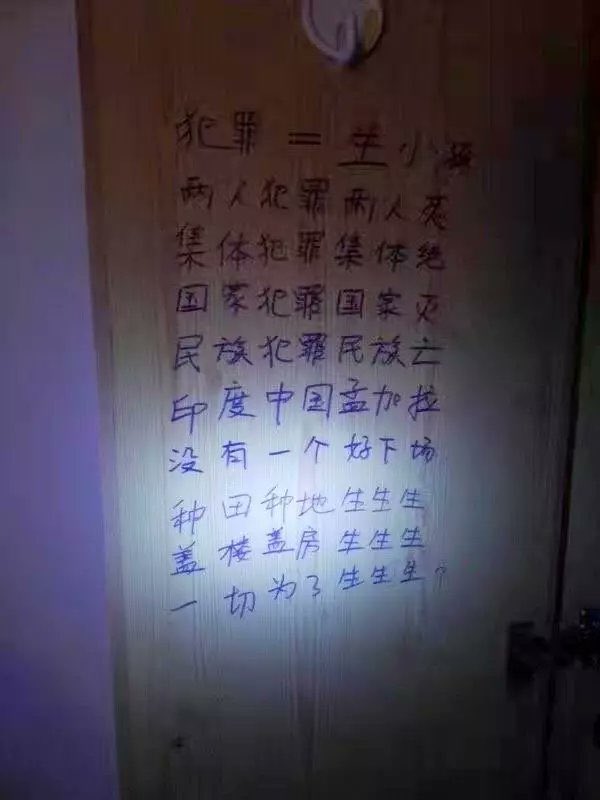 犯罪=生小孩
两人犯罪两人死
集体犯罪集体绝
国家犯罪国家灭
民族犯罪民族亡
印度中国孟加拉
没有一个好下场
种田种地生生生
盖楼盖房生生生
一切为了生生生?